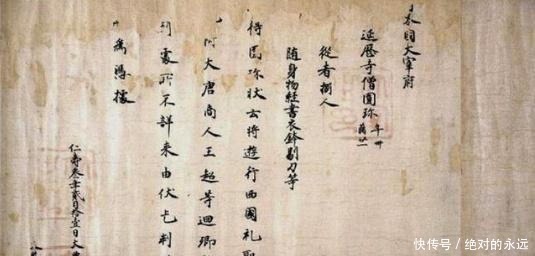 本國大宰府
延歷寺僧圓珎 年卌 臈廿一
從者捌人
随身物経書衣鉢剔刀等
得圓珎状云将遊行西國礼聖
附大唐商人王超等廻郷
到處所不詳来由伏乞判
為憑據
仁壽叁年貳月拾壹日大
快传号／绝对的永远